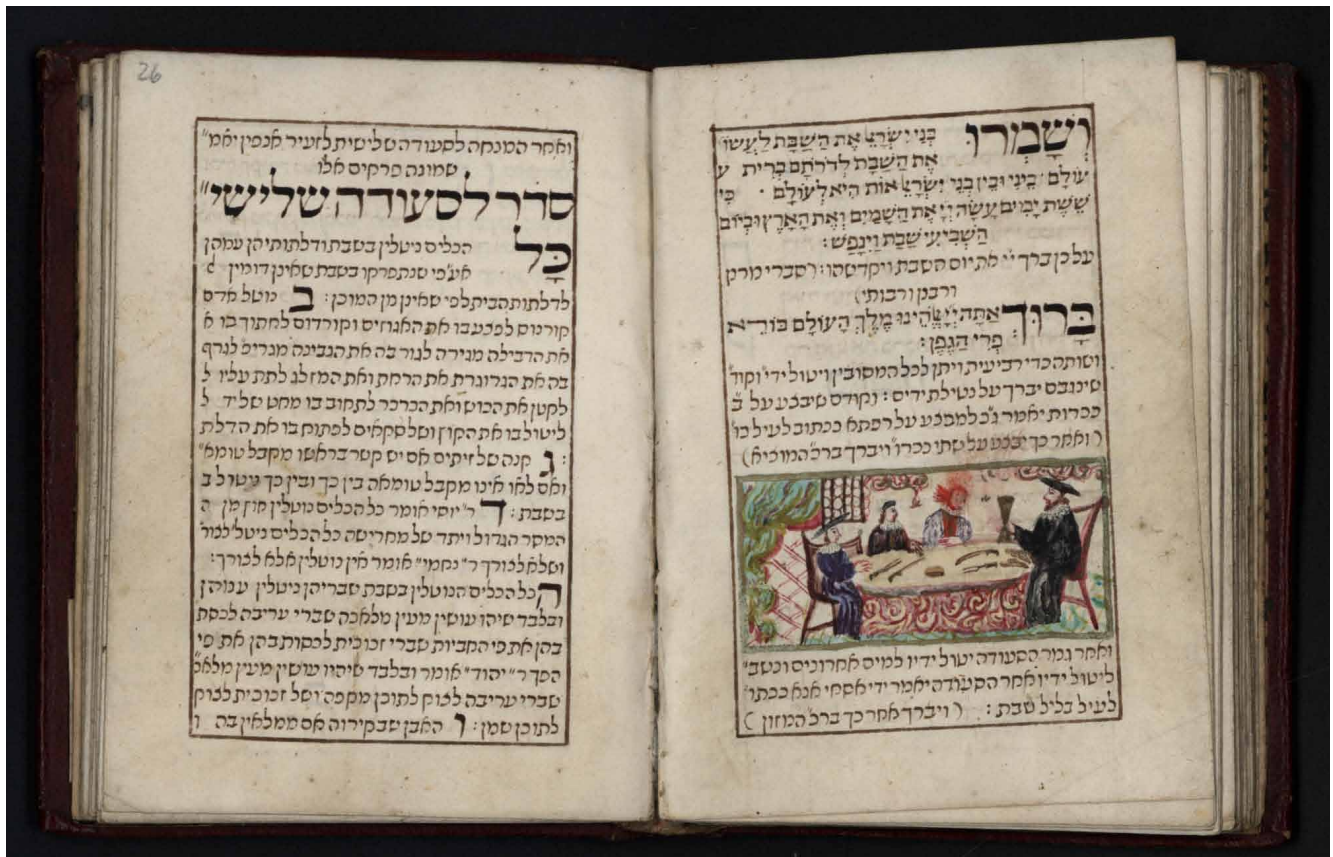 וְשָׁמְרוּ בְּנֵי יִשְׂרָאֵל אֶת הַשַּׁבָּת לַעֲשׂוֹ
אֶת הַשַּׁבָּת לְדֹרֹתָם בְּרִית ע
עוֹלָם בֵּינִי וּבֵין בְּנֵי יִשְׂרָאֵל אוֹת הִיא לְעוֹלָם כִּי
שֵׁשֶׁת יָמִים עָשָׂה יְיָ אֶת הַשָּׁמַיִם וְאֶת הָאָרֶץ וּבַיּוֹם
הַשְּׁבִיעִי שָׁבַת וַיִּנָּפַשׁ:
על כן ברך יי את יום השבת ויקדשהו: (סברי מרנן
ורבנן ורבותי)
בָּרוּךְ אַתָּה יְיָ אֱלֹהֵינוּ מֶלֶךְ הָעוֹלָם בּוֹרֵא
פְּרִי הַגֶּפֶן:
ושותה כדי רביעית ויתן לכל המסובין ויטול ידי" וקוד"
שינגבם יברך על נטילת ידים: וקודם שיבצע על ב"
ככרות יאמר ג"כ למבצע על רפתא ככתוב לעיל כו'
(ואחר כך יבצע על שתי ככרו' ויברך ברכ' המוציא)
ואחר גמר הסעודה יטול ידיו למים אחרונים וכשב"
ליטול ידיו אחר הסעודה יאמר ידי אסחי אנא ככתו'
לעיל בליל שבת: (ויברך אחר כך ברכ' המזון)
26
ואחר המנחה לסעודה שלישית לזעיר אנפין יאמ"
שמונה פרקים אלו
סדר לסעודה שלישי"
כָּל הכלים ניטלין בשבת ודלתותיהן עמהן
אע"פי שנתפרקו בשבת שאינן דומין ל
לדלתות הבית לפי שאינן מן המוכן: ב נוטל אדם
קורנוס לפצע בו את האגוזים וקורדום לחתוך בו א
את הדבילה מגירה לגור בה את הגבינה מגריפ לגרף
בה את הגרוגרת את הרחת ואת המזלג לתת עליו ל
לקטן את הכוש ואת הכרכר לתחוב בו מחט של יד ל
ליטול בו את הקוץ ושל סקאים לפתוח בו את הדלת
: ג קנה של זיתים אם יש קשר בראשו מקבל טומא"
ואם לאו אינו מקבל טומאה בין כך ובין כך ניטול ב
בשבת: ד ר' יוסי אומר כל הכלים נוטלין חוץ מן ה
המסר הגדול ויתד של מחרישה כל הכלים ניטל' לצור'
ושלא לצורך ר' נחמי' אומר אין נוטלין אלא לצורך:
ה כל הכלים הנוטלין בשבת שבריהן ניטלין עמהן
ובלבד שיהו עושין מעין מלאכה שברי עריבה לכסת
בהן את פי החביות שברי זכוכית לכסות בהן את פי
הפך ר' יהוד' אומר ובלבד שיהיו עושין מעין מלאכ'
שברי עריבה לצוק לתוכן מקפה ושל זכוכית לצוק
לתוכן שמן: ו האבן שבקירוה אם ממלאין בה ו